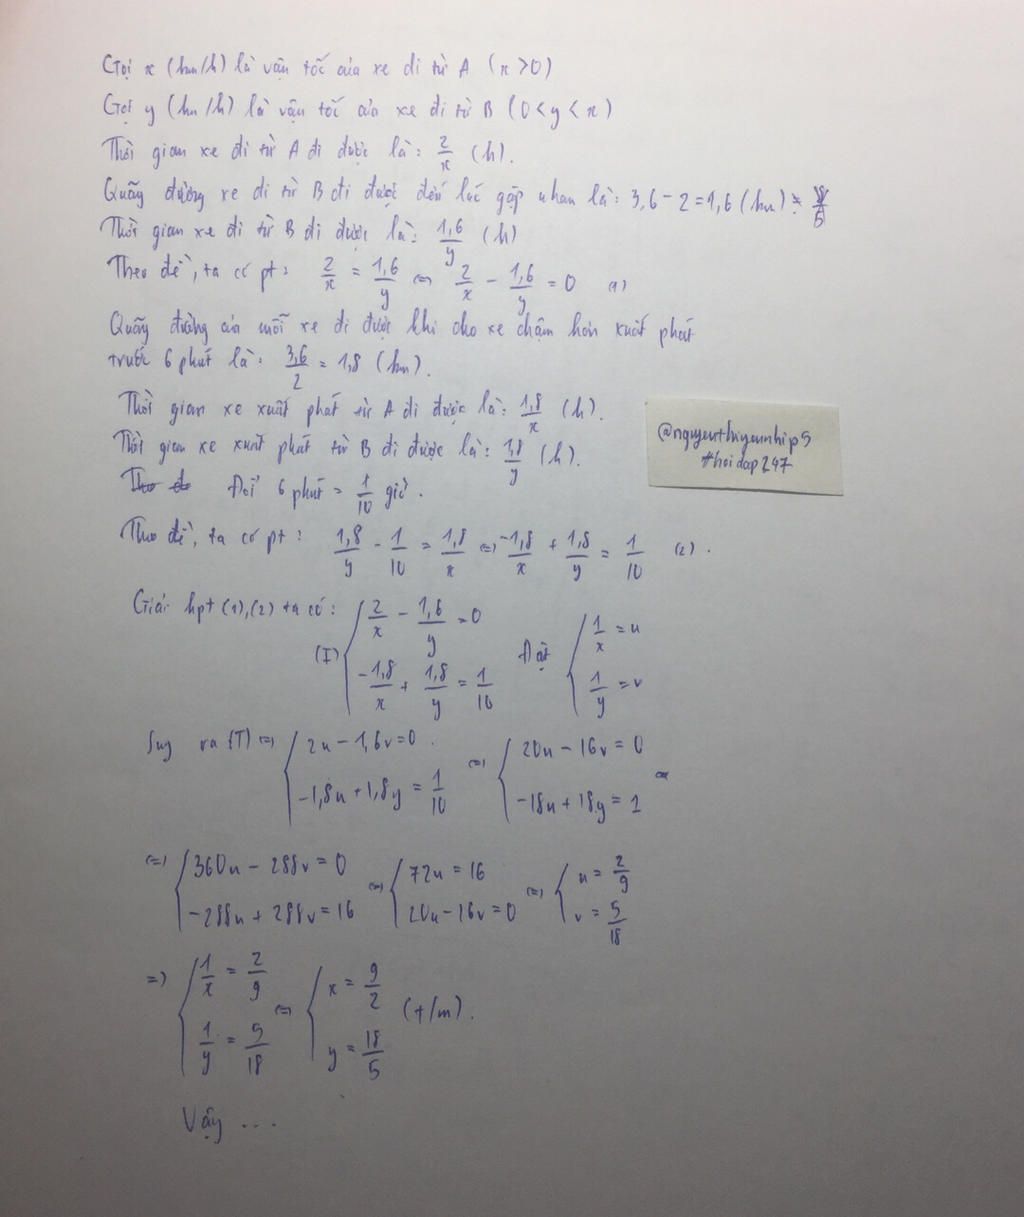 Gọi x (km/h) là vận tốc của xe đi từ A (x > 0)
Gọi y (km/h) là vận tốc của xe đi từ B (0 < y < x)
Thời gian xe đi từ A đi được là: 2/x (h).
Quãng đường xe đi từ B đi được đến lúc gặp nhau là: 3,6 - 2 = 1,6 (km)
Thời gian xe đi từ B đi được là: 1,6/y (h)
Theo đề, ta có pt: 2/x = 1,6/y <=> 2/x - 1,6/y = 0 (1)
Quãng đường của mỗi xe đi được khi cho xe chậm hơn xuất phát
trước 6 phút là: 3,6/2 = 1,8 (km).
Thời gian xe xuất phát từ A đi được là: 1,8/x (h).
Thời gian xe xuất phát từ B đi được là: 1,8/y (h).
@nguyenthiyennhip5
#hoidap247
Đổi 6 phút = 1/10 giờ.
Theo đề, ta có pt: 1,8/y - 1/10 = 1,8/x <=> -1,8/x + 1,8/y = 1/10 (2).
Giải hpt (1), (2) ta có: (I) { 2/x - 1,6/y = 0
-1,8/x + 1,8/y = 1/10
Đặt { 1/x = u
1/y = v
Suy ra (I) <=> { 2u - 1,6v = 0.
-1,8u + 1,8y = 1/10
<=> { 20u - 16v = 0
-18u + 18y = 1
<=>
<=> { 360u - 288v = 0
-288u + 288v = 16
<=> { 72u = 16
20u - 16v = 0
<=> { u = 2/9
v = 5/18
=> { 1/x = 2/9
1/y = 5/18
<=> { x = 9/2
y = 18/5
(t/m).
Vậy ...